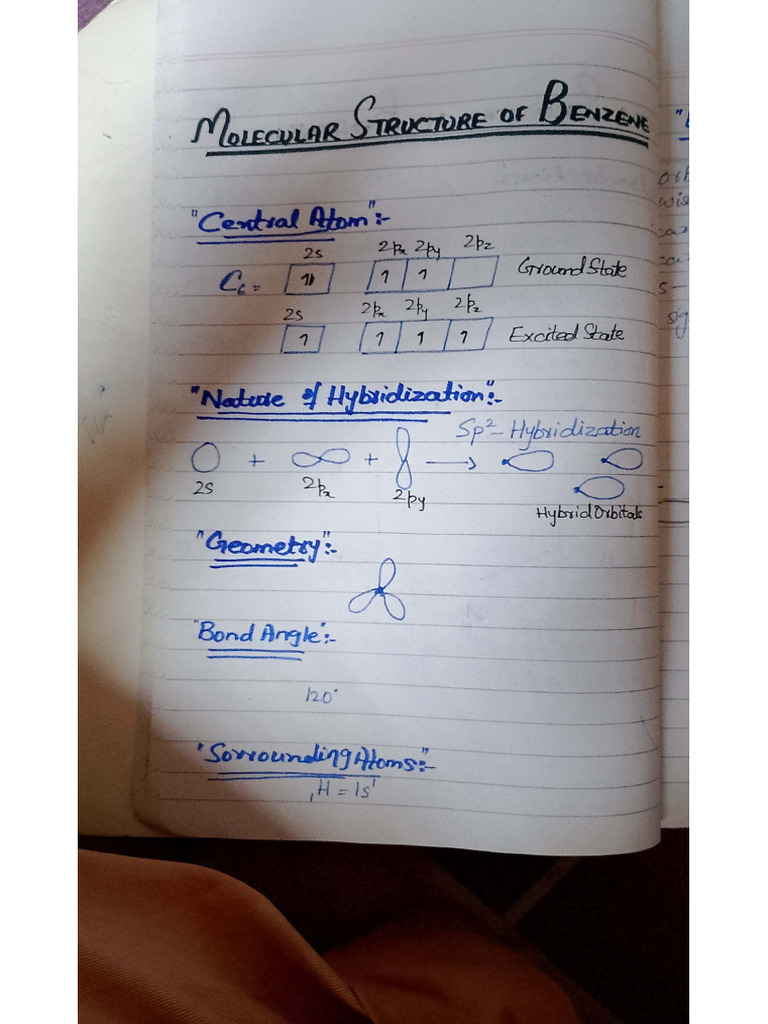 MOLECULAR STRUCTURE OF BENZENE
"Central Atom":-
2s 2px 2py 2pz
C6 = 1⇂ 1 1 Ground State
2s 2px 2py 2pz
1 1 1 1 Excited State
"Nature of Hybridization":-
Sp²-Hybridization
+ + →
2s 2px 2py
Hybrid Orbitals
"Geometry":-
"Bond Angle":-
120°
"Sorrounding Atoms":-
H = 1s¹